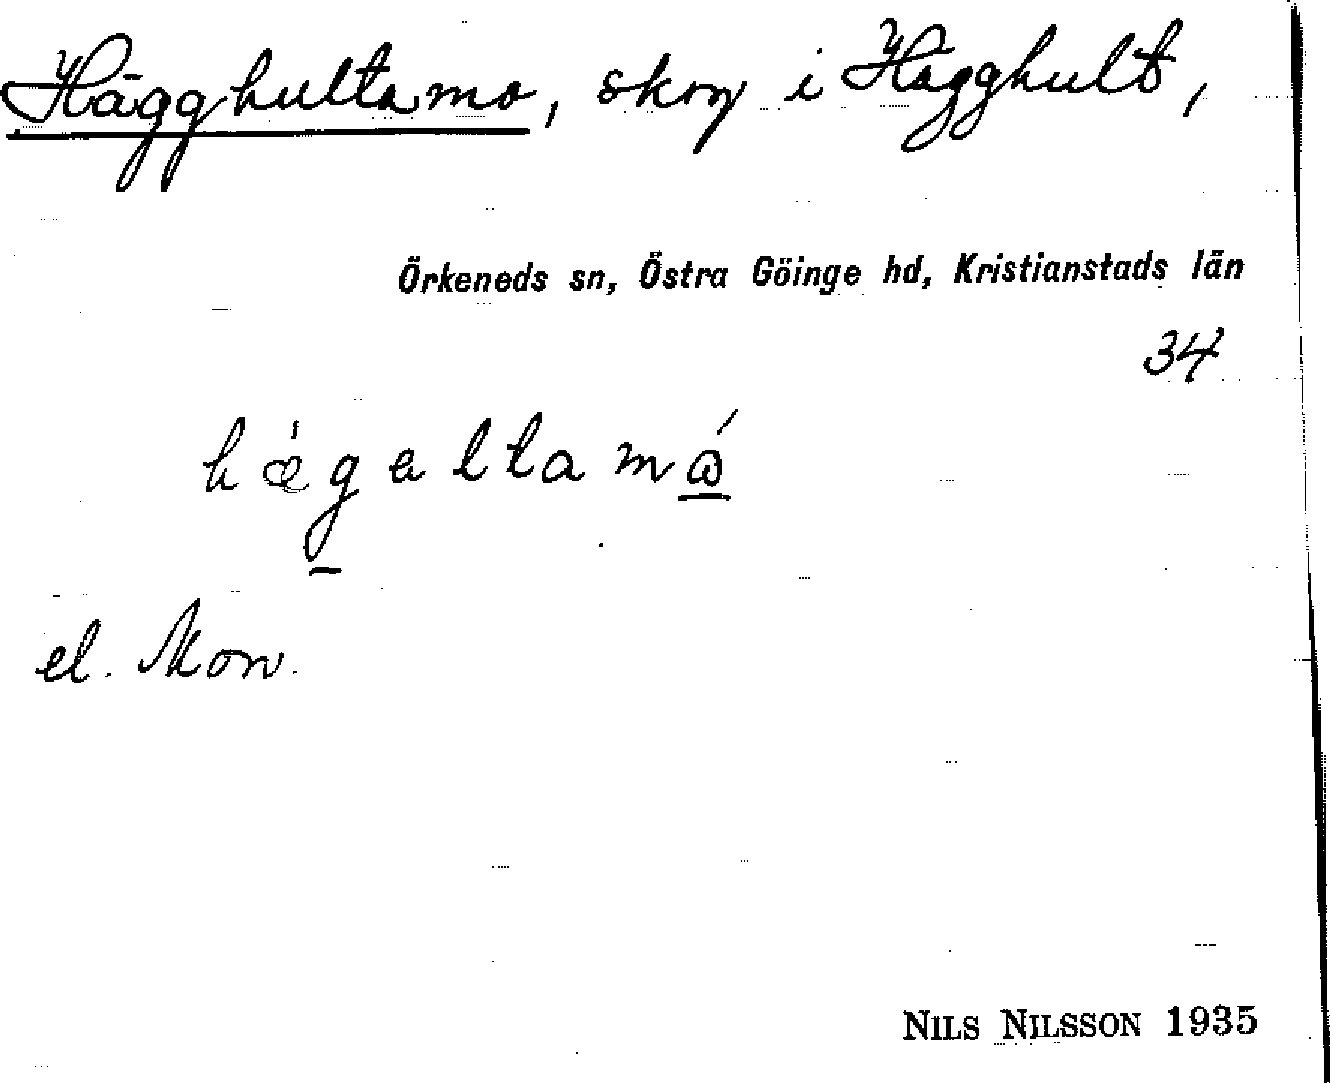 Hägghultamo, skog i Hägghult,
Örkeneds sn, Östra Göinge hd, Kristianstads län
34
hægaltamɷ́
el. Mon.
NILS NILSSON 1935